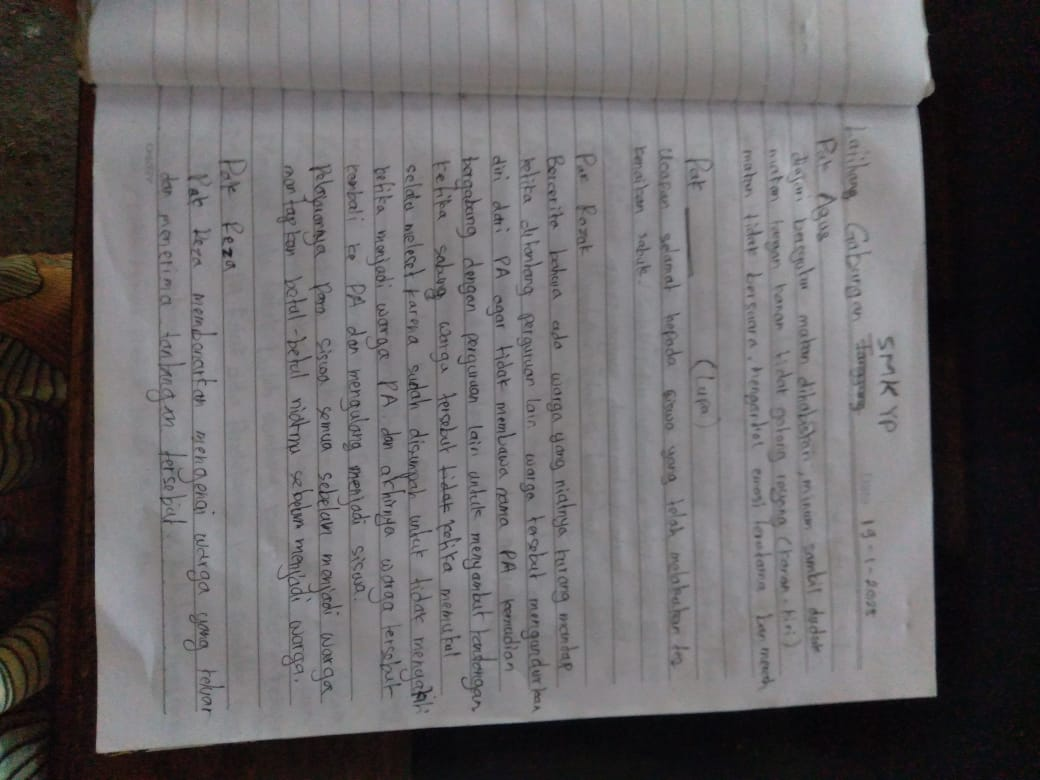 SMK YP
Latihang Gabungan Tanggang 19-1-2025
Pak Agus
diajari bersyukur makan dihabiskan, minum sambil duduk
makan tangan kanan tidak golong royong (kanan, kiri)
makan tidak bersuara, mengontrol emosi terutama kan merah
Pak (lupa)
Ucapan selamat kepada siswa yang telah melakukan tes
kenaikan sabuk.
Pak Razak
Bercerita bahwa ada warga yang niatnya kurang mantap
ketika ditantang perguruan lain warga tersebut mengundurkan
diri dari PA agar tidak membawa nama PA kemudian
bergabung dengan perguruan lain untuk menyambut tantangan
ketika sabung warga tersebut tidak ketika memukul
selalu meleset karena sudah disumpah untuk tidak mengabli
ketika menjadi warga PA dan akhirnya warga tersebut
kembali ke PA dan mengulang menjadi siswa.
Pelajaranya para siswa semua sebelum menjadi warga
mantapkan betul-betul niatmu sebelum menjadi warga.
Pak Reza
Pak Reza membenarkan mengenai warga yang keluar
dan menerima tantangan tersebut.